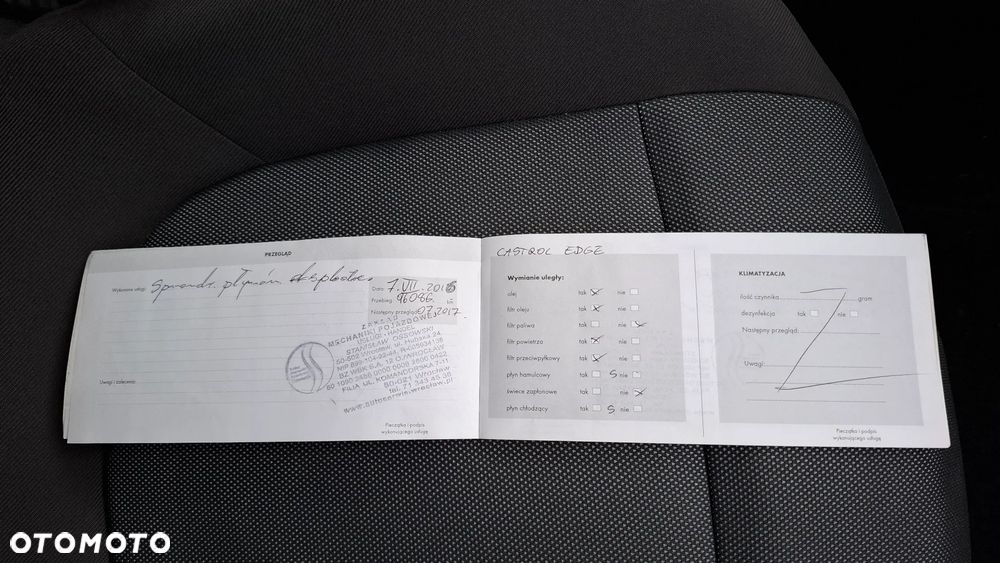 PRZEGLĄD
Wykonane usługi: Sprawdz. płynów eksploatac.
Data: 7.VII.2016
Przebieg: 96086. km
Następny przegląd: 07.2017.
ZAKŁAD
MECHANIKI POJAZDOWEJ
USŁUGI - HANDEL
STANISŁAW OSSOWSKI
50-502 Wrocław, ul. Hubska 24
BZ WBK S.A. 12 O/WROCŁAW
FILIA UL. KOMANDORSKA
Wrocław
www.autoserwis.wroclaw.pl
Uwagi i zalecenia:
Pieczątka i podpis
wykonującego usługę
CASTROL EDGE
Wymianie uległy:
olej tak nie
filtr oleju tak nie
filtr paliwa tak nie
filtr powietrza tak nie
filtr przeciwpyłkowy tak nie
płyn hamulcowy tak S nie
świece zapłonowe tak nie
płyn chłodzący tak S nie
KLIMATYZACJA
ilość czynnika gram
dezynfekcja tak nie
Następny przegląd:
Uwagi:
Pieczątka i podpis
wykonującego usługę
OTOMOTO